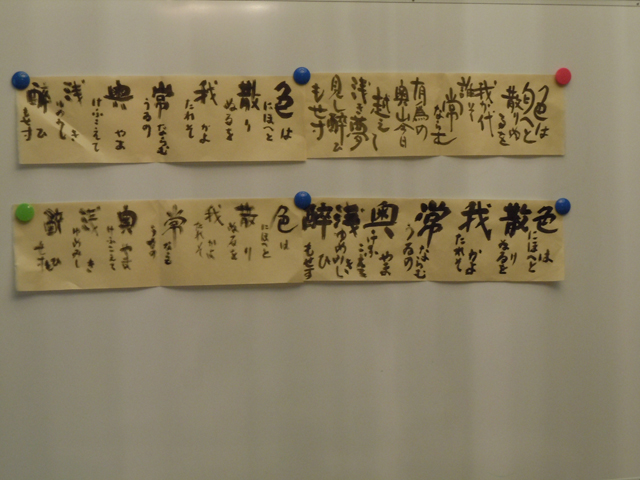 色は
にほへと
散り
ぬるを
我かよ
たれそ
常ならむ
うゐの
奥やま
けふこえて
浅き
ゆめみし
酔ひ
もせす
色は
匂へと
散りぬ
るを
我か代
誰そ
常
ならむ
有為の
奥山今日
越えし
浅き夢
見し酔ひ
もせす
色は
にほへと
散り
ぬるを
我かよ
たれそ
常ならむ
うゐの
奥やま
けふこえて
浅き
ゆめみし
酔ひ
もせす
色は
にほへと
散り
ぬるを
我かよ
たれそ
常ならむ
うゐの
奥やま
けふこえて
浅き
ゆめみし
酔ひ
もせす